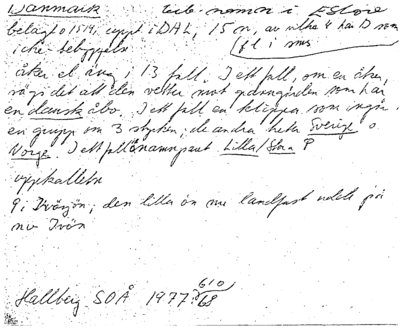 Danmark namn i
belagt o 1519, uppt i DAL, 15 n, av vilka 4 har D som
icke-bebyggelse
åker el äng i 13 fall. I ett fall, om en åker,
sägs det att den vetter mot gården som har
en dansk åbo. I ett fall en klippa som ingår i
en grupp om 3 stycken; de andra heta Sverige o
Norge. I ett fall ånamnpaut Lilla/Stora P
uppkallelse
9 i Ivösjön; den lilla ön nu landfast udde på
nv Ivön
Hallberg SOÅ 1977 610/68